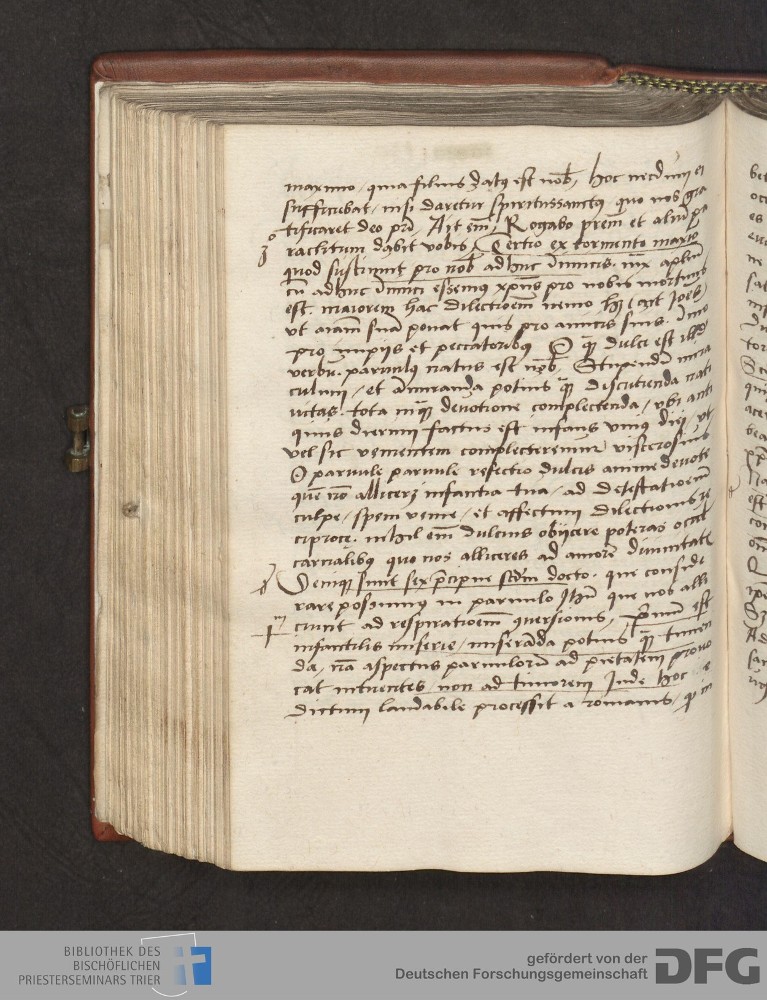 maximo, quia filius datus est nob, hoc necdum ei
sufficiebat, nisi daretur spiritussanctus quo nos gra
tificaret deo pri, Ait em, Rogabo prem et aliu pa
3º
raclitum dabit vobis, Tertio ex tormento maxio
quod sustinuit pro nob adhuc inimicis. apłm
cu adhuc inimici essemus xpus pro nobis mortuus
est. maiorem hac dilectioem nemo ht (ait Joes)
ut aiam sua ponat quis pro amicis suis. Imo
pro impiis et peccatoribus O quam dulce est illud
verbu. parvulus natus est nob. Stupendu mira
culum, et admiranda potius quam discutienda nati
vitas. tota inquam devotione complectenda, ubi anti
quus dierum factus est infans unius diei, ut
vel sic vementem complecteremur viscerosius
O parvule parvule refectio dulcis anime devote
que no alliceres infantia tua, ad detestatioem
culpe, spem venie, et affectum dilectionis re
ciproce. nihil em dulcius obijcere poteras ocul
carnalibus quo nos alliceres ad amore divinitat
Deniqz sunt sex pcipue sedm docto. que conside
rare possumus in parvulo Jhu que nos alli
ciunt ad respiratioem conversionis, Primu est
infantilis miserie, miseranda potius quam timen
da, na aspectus parvuloru ad pietatem provo
cat intuentes, non ad timorem Inde hoc
dictum laudabile processit a romanis,
BIBLIOTHEK DES
BISCHÖFLICHEN
PRIESTERSEMINARS TRIER
gefördert von der
Deutschen Forschungsgemeinschaft
DFG